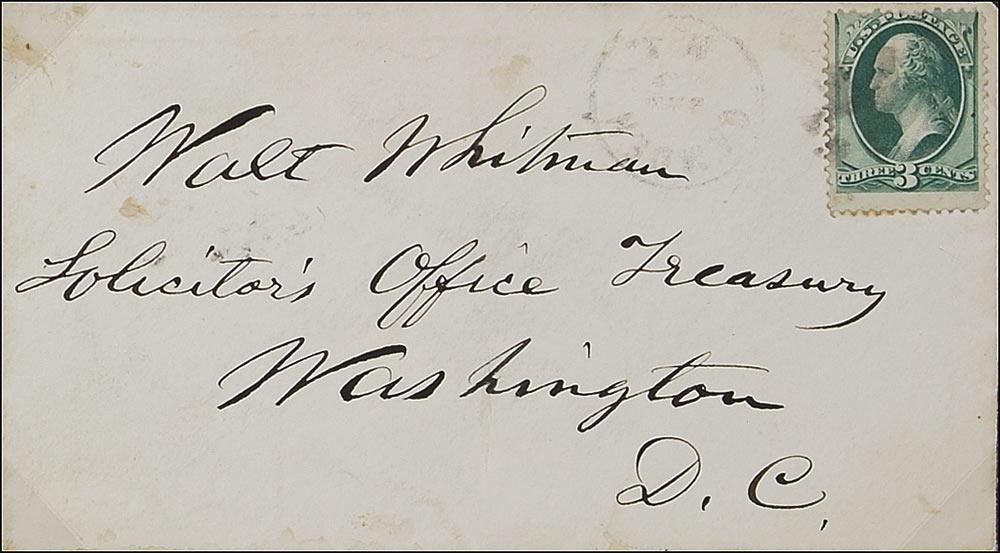 U.S. POSTAGE
THREE 3 CENTS
Walt Whitman
Solicitor's Office Treasury
Washington
D. C.